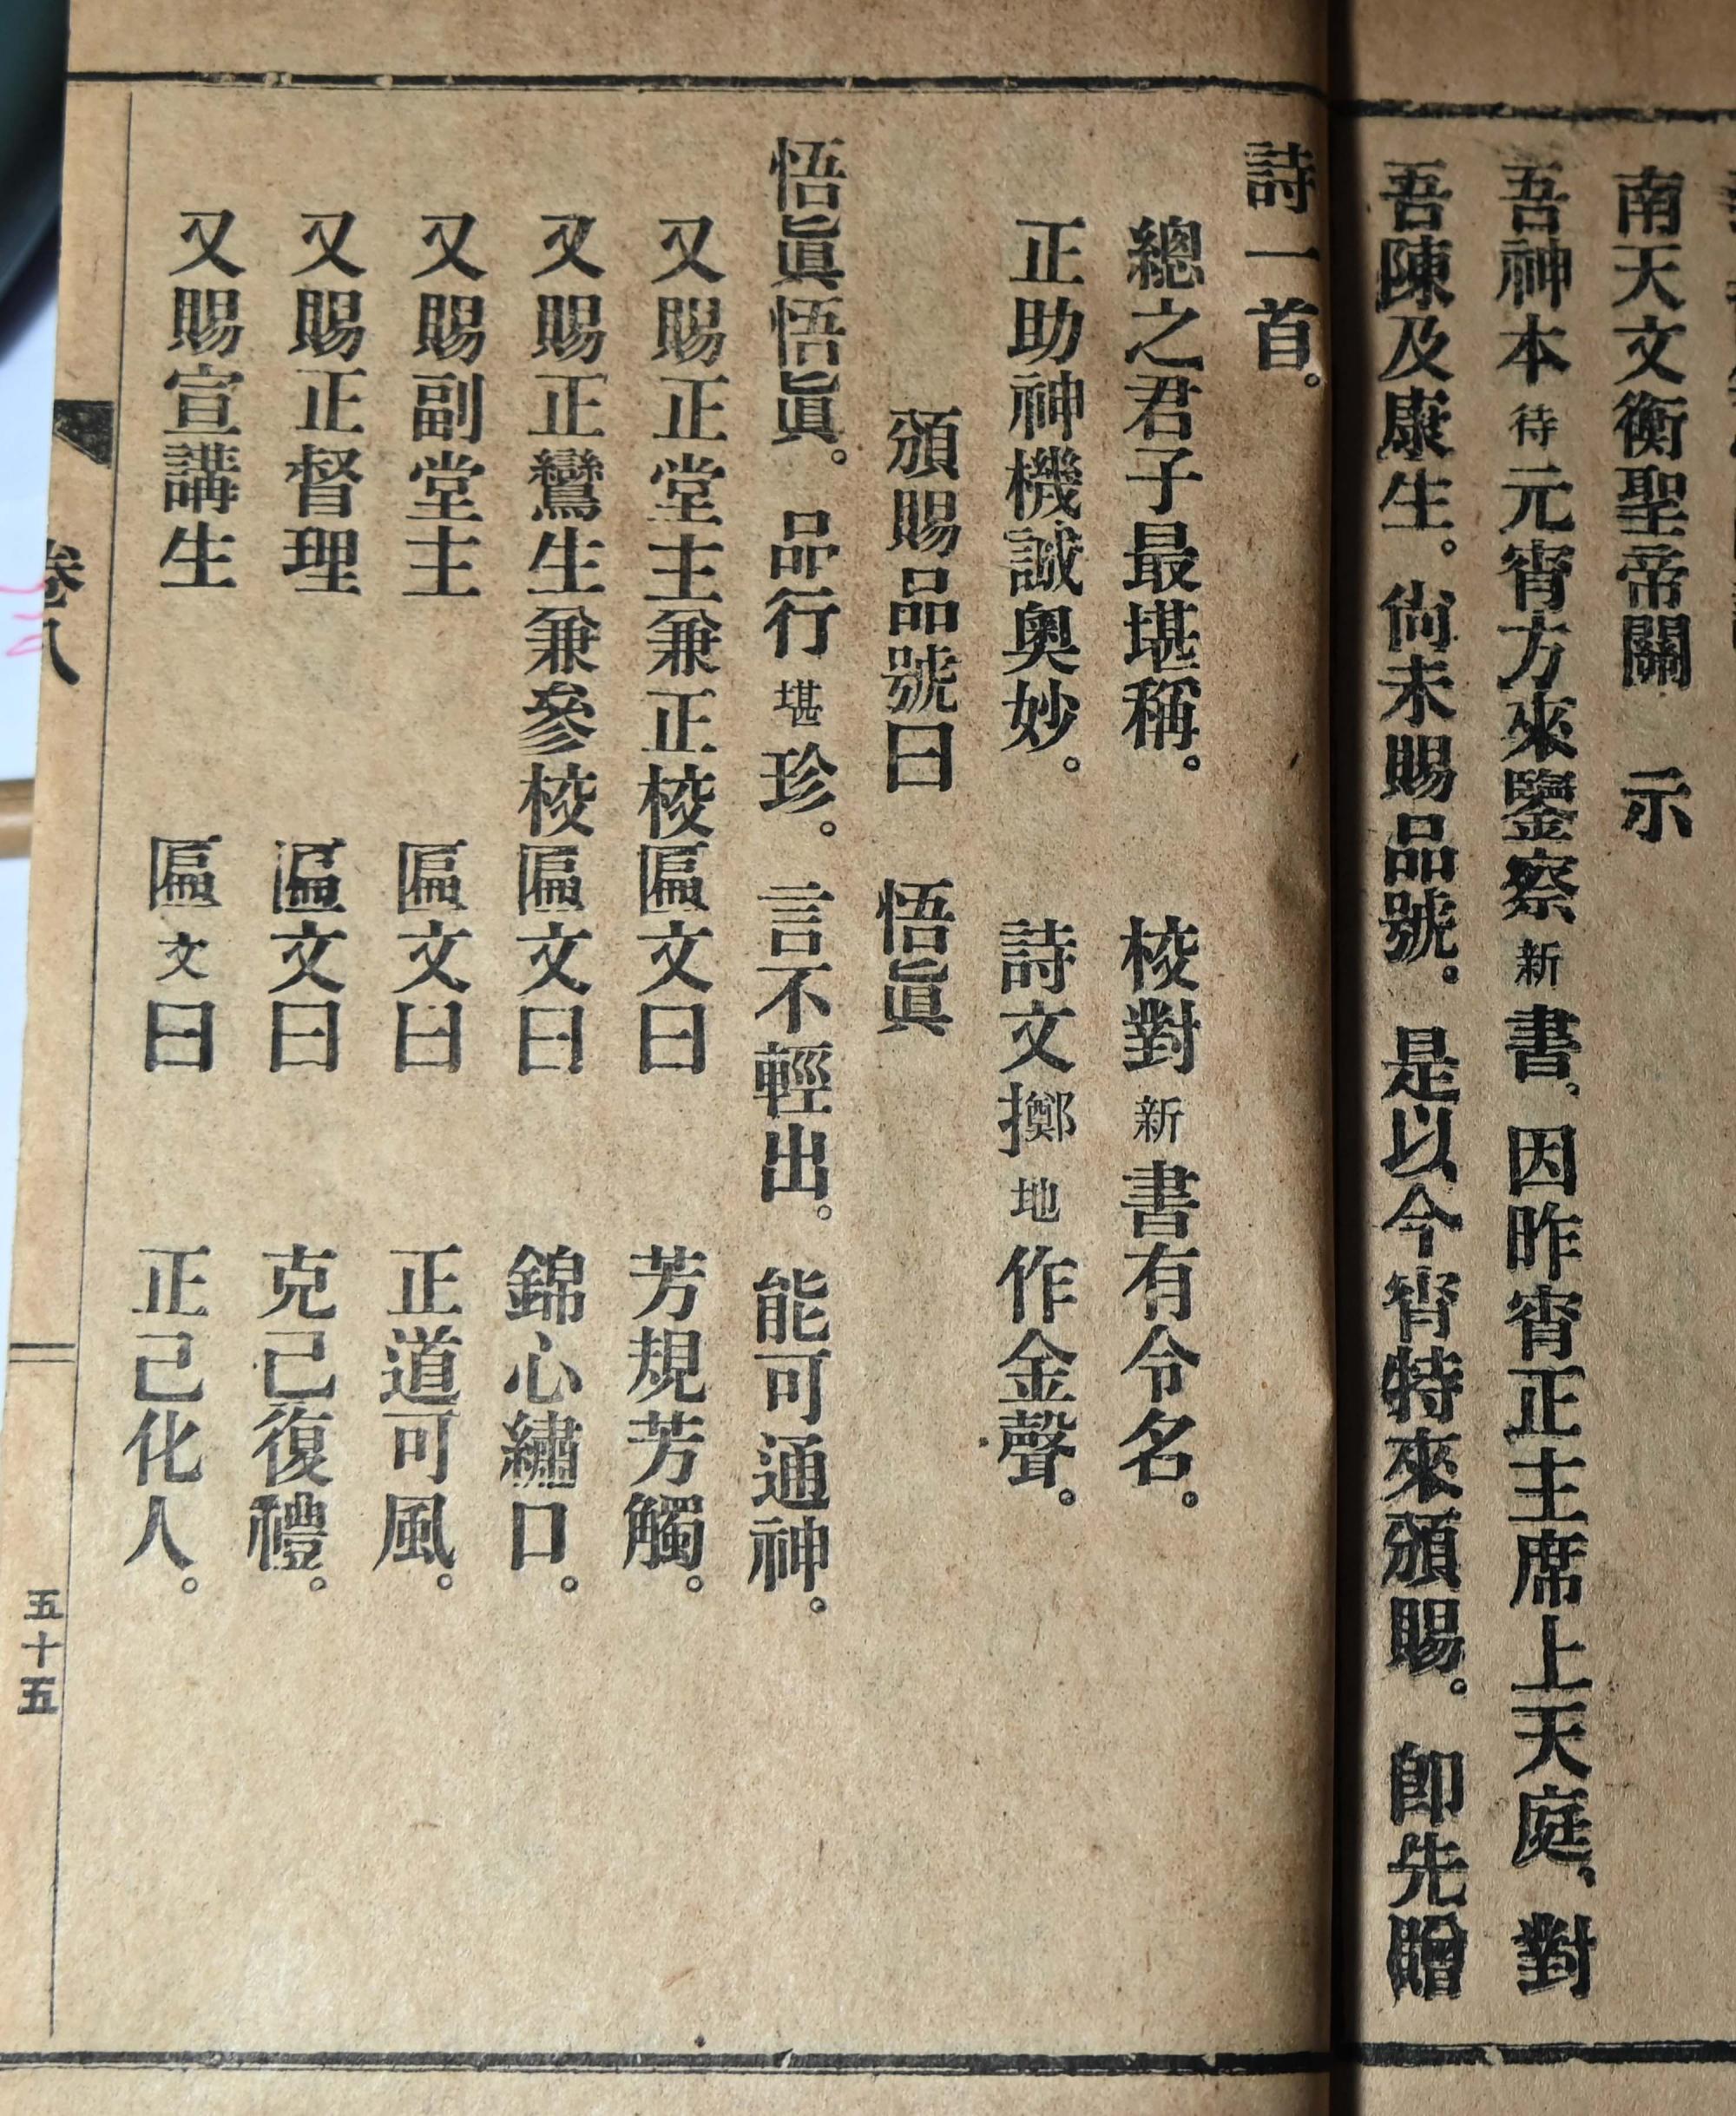 南天文衡聖帝關　示
吾神本待元宵方來鑒察新書、因昨宵正主席上天庭、對
吾陳及康生。尙未賜品號。是以今宵特來頒賜。卽先贈
詩一首。
總之君子最堪稱。　校對新書有令名。
正助神機誠奧妙。　詩文擲地作金聲。
頒賜品號曰　悟眞
悟眞悟眞。品行堪珍。言不輕出。能可通神。
又賜正堂主兼正校匾文曰　芳規芳觸。
又賜正鸞生兼參校匾文曰　錦心繡口。
又賜副堂主　匾文曰　正道可風。
又賜正督理　匾文曰　克己復禮。
又賜宣講生　匾文曰　正己化人。
卷八
五十五